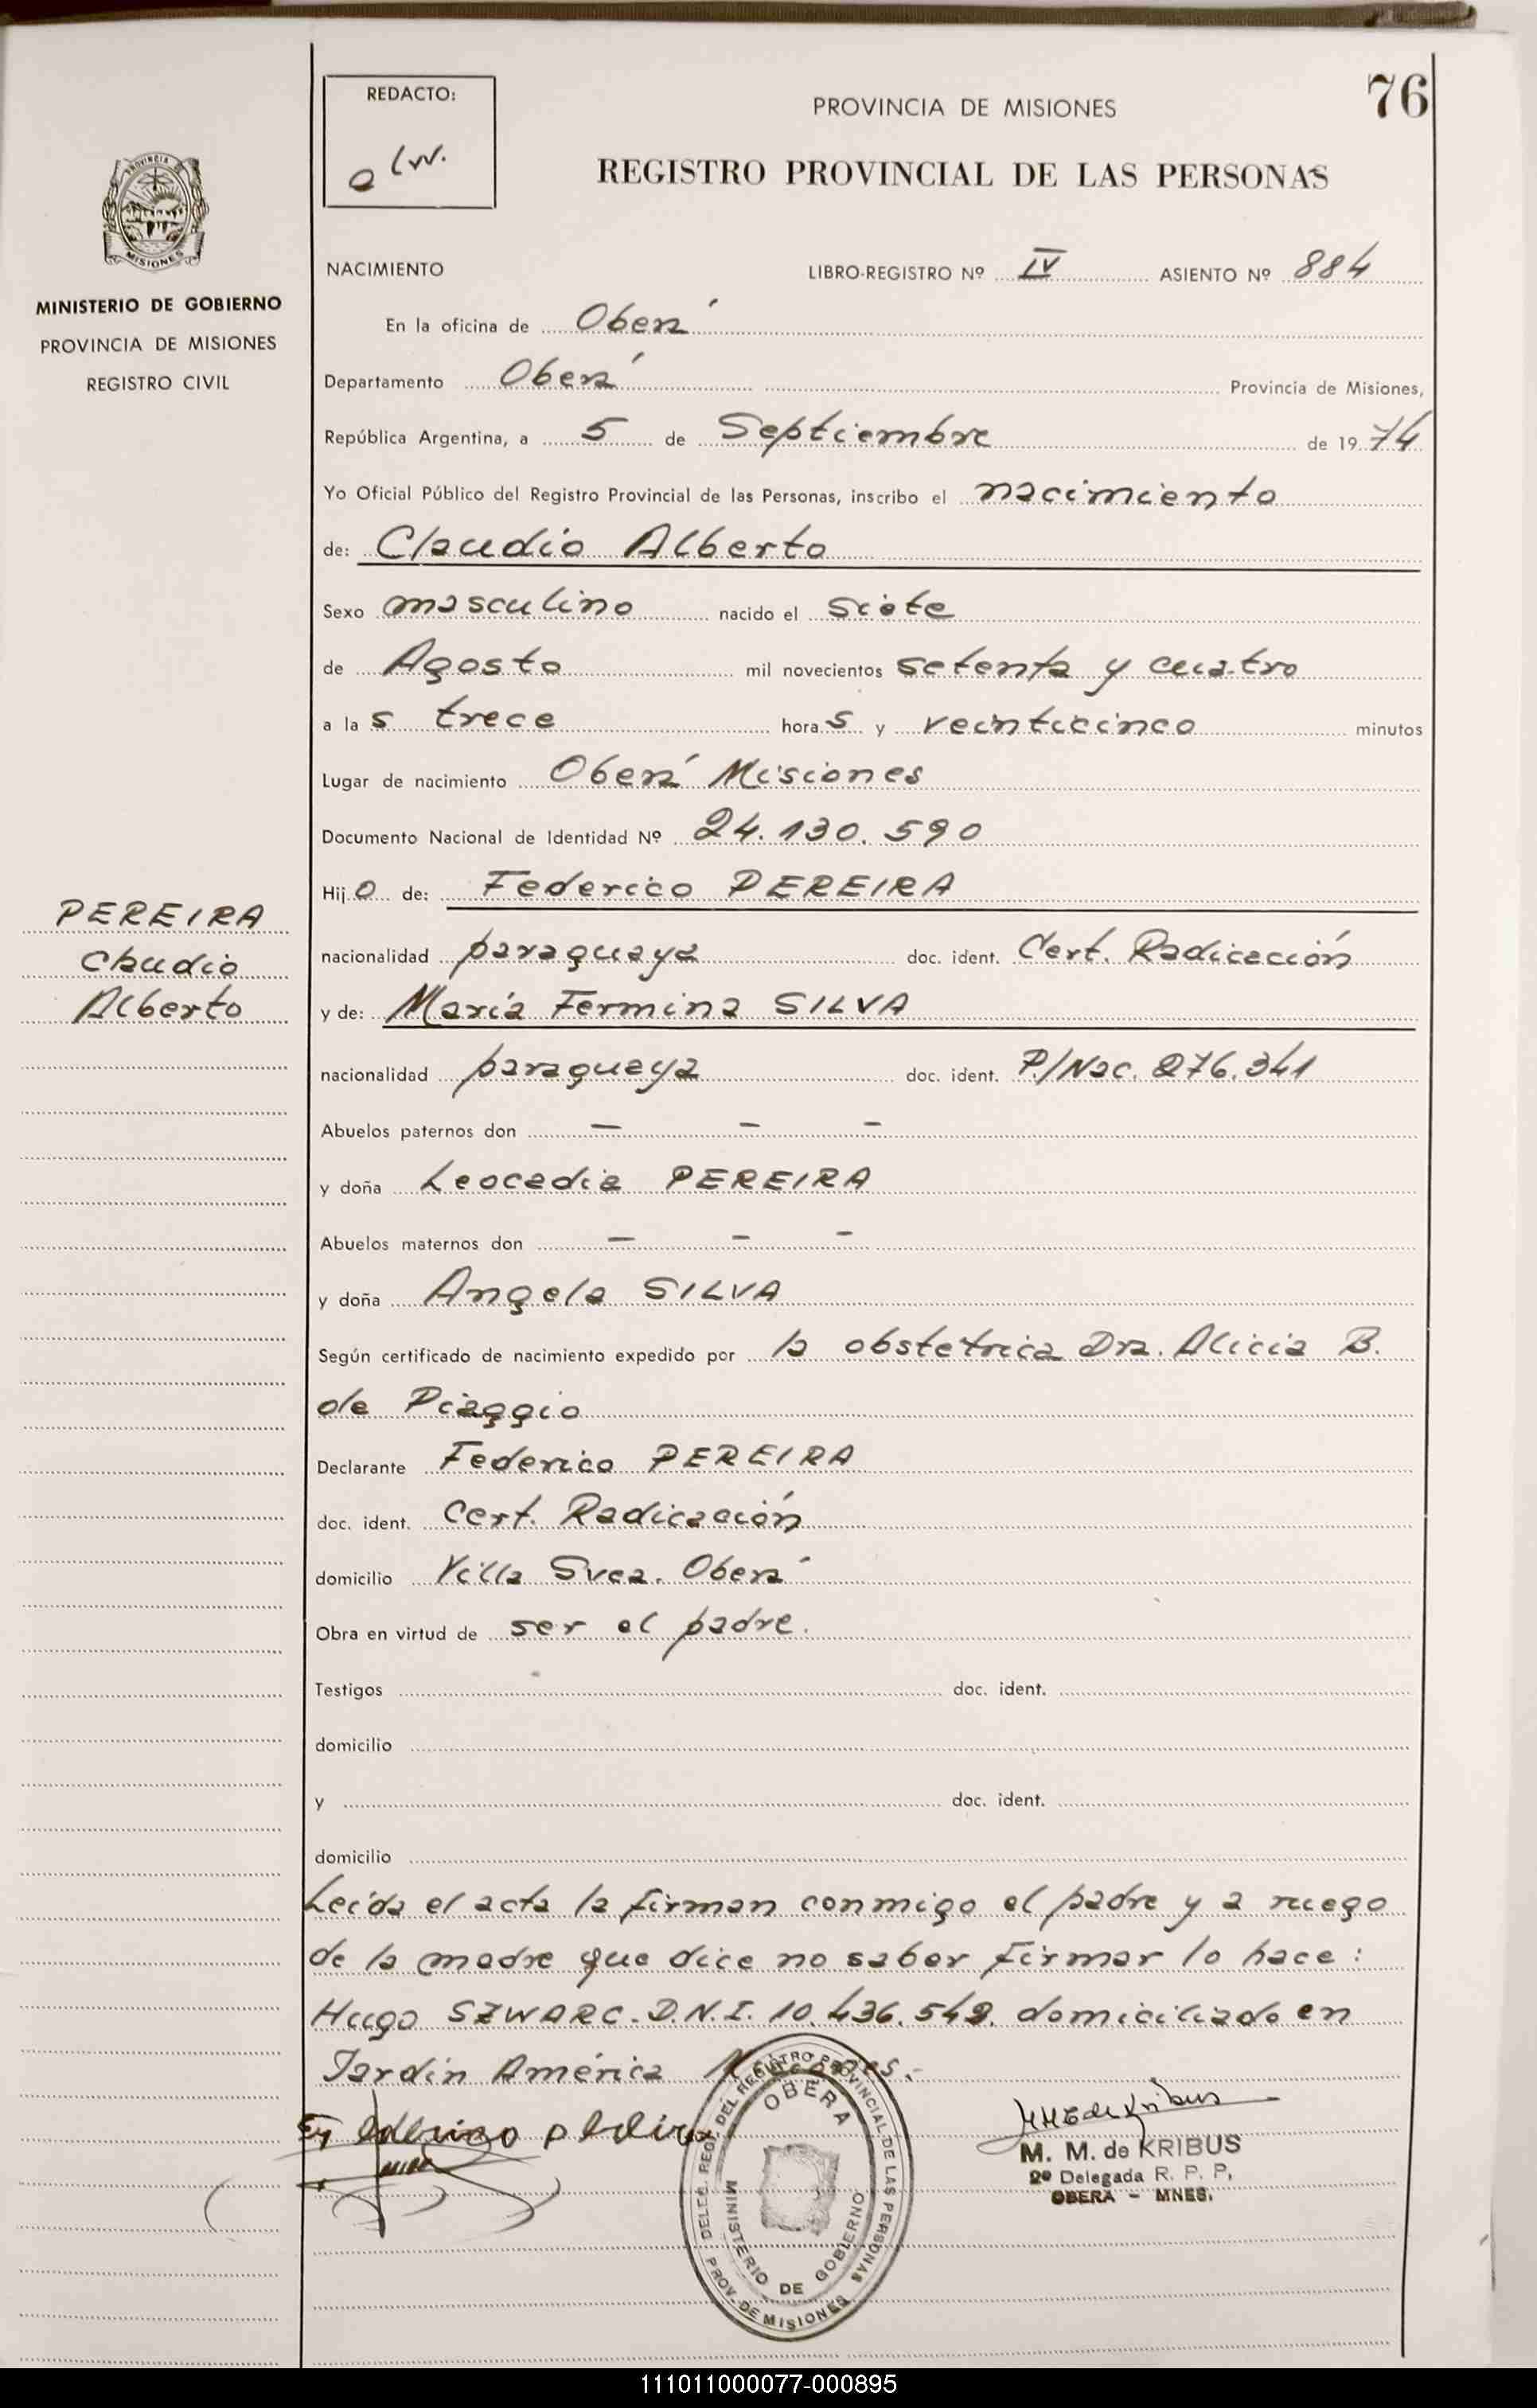 76
REDACTO:
PROVINCIA DE MISIONES
REGISTRO PROVINCIAL DE LAS PERSONAS
PROVINCIA
MISIONES
MINISTERIO DE GOBIERNO
PROVINCIA DE MISIONES
REGISTRO CIVIL
NACIMIENTO LIBRO-REGISTRO Nº IV ASIENTO Nº 884
En la oficina de Oberá
Departamento Oberá Provincia de Misiones,
República Argentina, a 5 de Septiembre de 1974
Yo Oficial Público del Registro Provincial de las Personas, inscribo el nacimiento
de: Claudio Alberto
Sexo masculino nacido el siete
de Agosto mil novecientos setenta y cuatro
a la s trece hora s y veinticinco minutos
Lugar de nacimiento Oberá Misiones
Documento Nacional de Identidad Nº 24.130.590
Hijo de: Federico PEREIRA
PEREIRA
Claudio
Alberto
nacionalidad paraguaya doc. ident. Cert. Radicación
y de: María Fermina SILVA
nacionalidad paraguaya doc. ident. P/Nac. 276.341
Abuelos paternos don — — —
y doña Leocadia PEREIRA
Abuelos maternos don — — —
y doña Angela SILVA
Según certificado de nacimiento expedido por la obstetrica Dra. Alicia B.
de Piaggio
Declarante Federico PEREIRA
doc. ident. Cert. Radicación
domicilio Villa Svea. Oberá
Obra en virtud de ser el padre.
Testigos doc. ident.
domicilio
y doc. ident.
domicilio
Leída el acta la firman conmigo el padre y a ruego
de la madre que dice no saber firmar lo hace:
Hugo SZWARC. D.N.I. 10.436.549. domiciliado en
Jardín América Misiones.-
M. M. de KRIBUS
2ª Delegada R. P. P.
OBERA - MNES.
DELEG. REG. DEL REGISTRO PROVINCIAL DE LAS PERSONAS
OBERA
MINISTERIO DE GOBIERNO
PROV. DE MISIONES
111011000077-000895